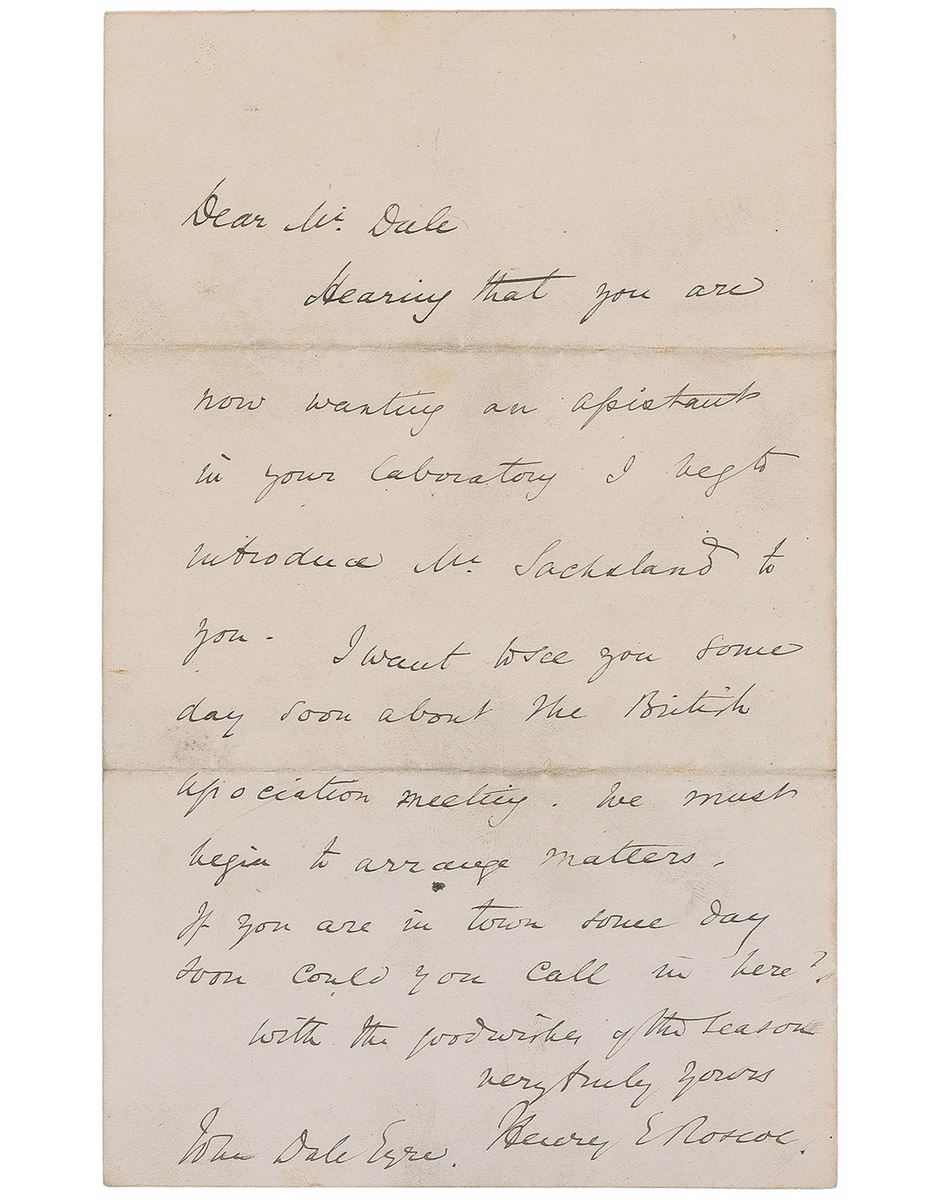 Dear Mr. Dale
Hearing that you are
now wanting an assistant
in your laboratory I beg to
introduce Mr Sachsland to
you. I want to see you some
day soon about the British
Association meeting. We must
begin to arrange matters.
If you are in town some day
soon could you call in here?
With the good wishes of the season
very truly yours
Henry E Roscoe.
John Dale Esqre.